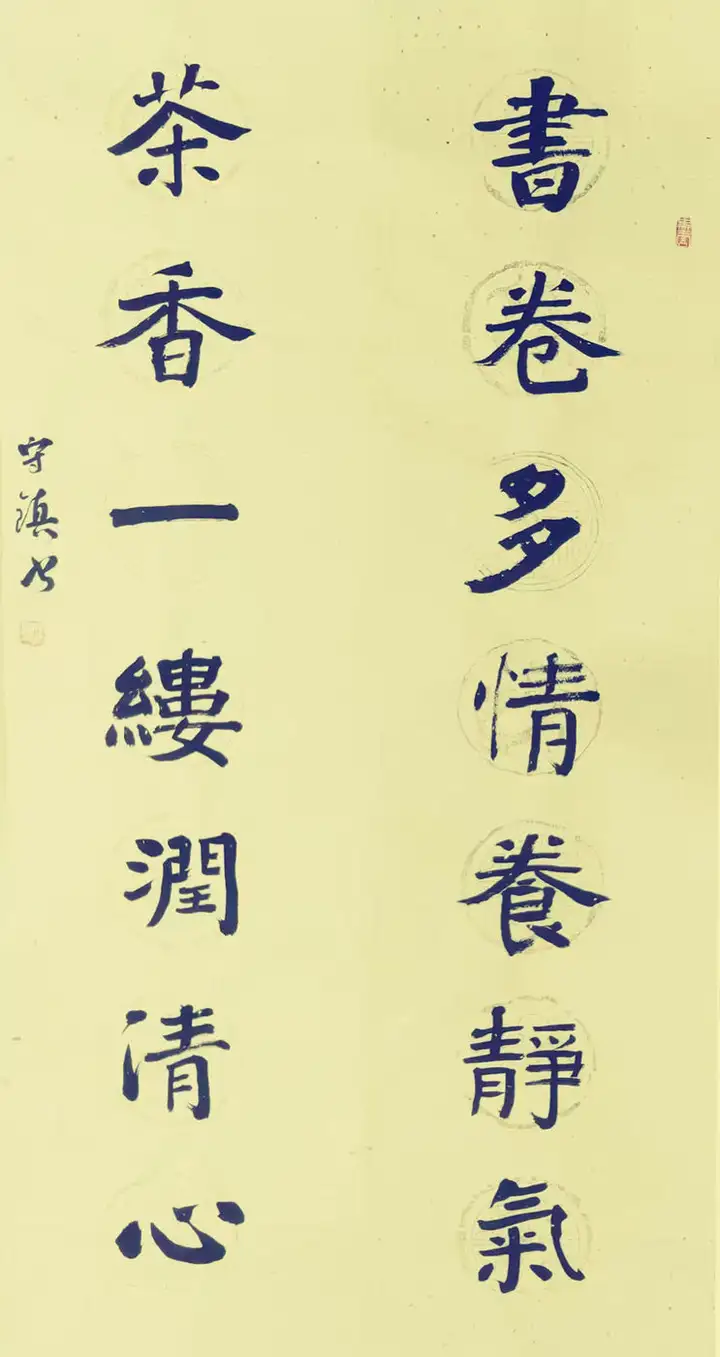 書卷多情養靜氣
茶香一縷潤清心
守鎮书